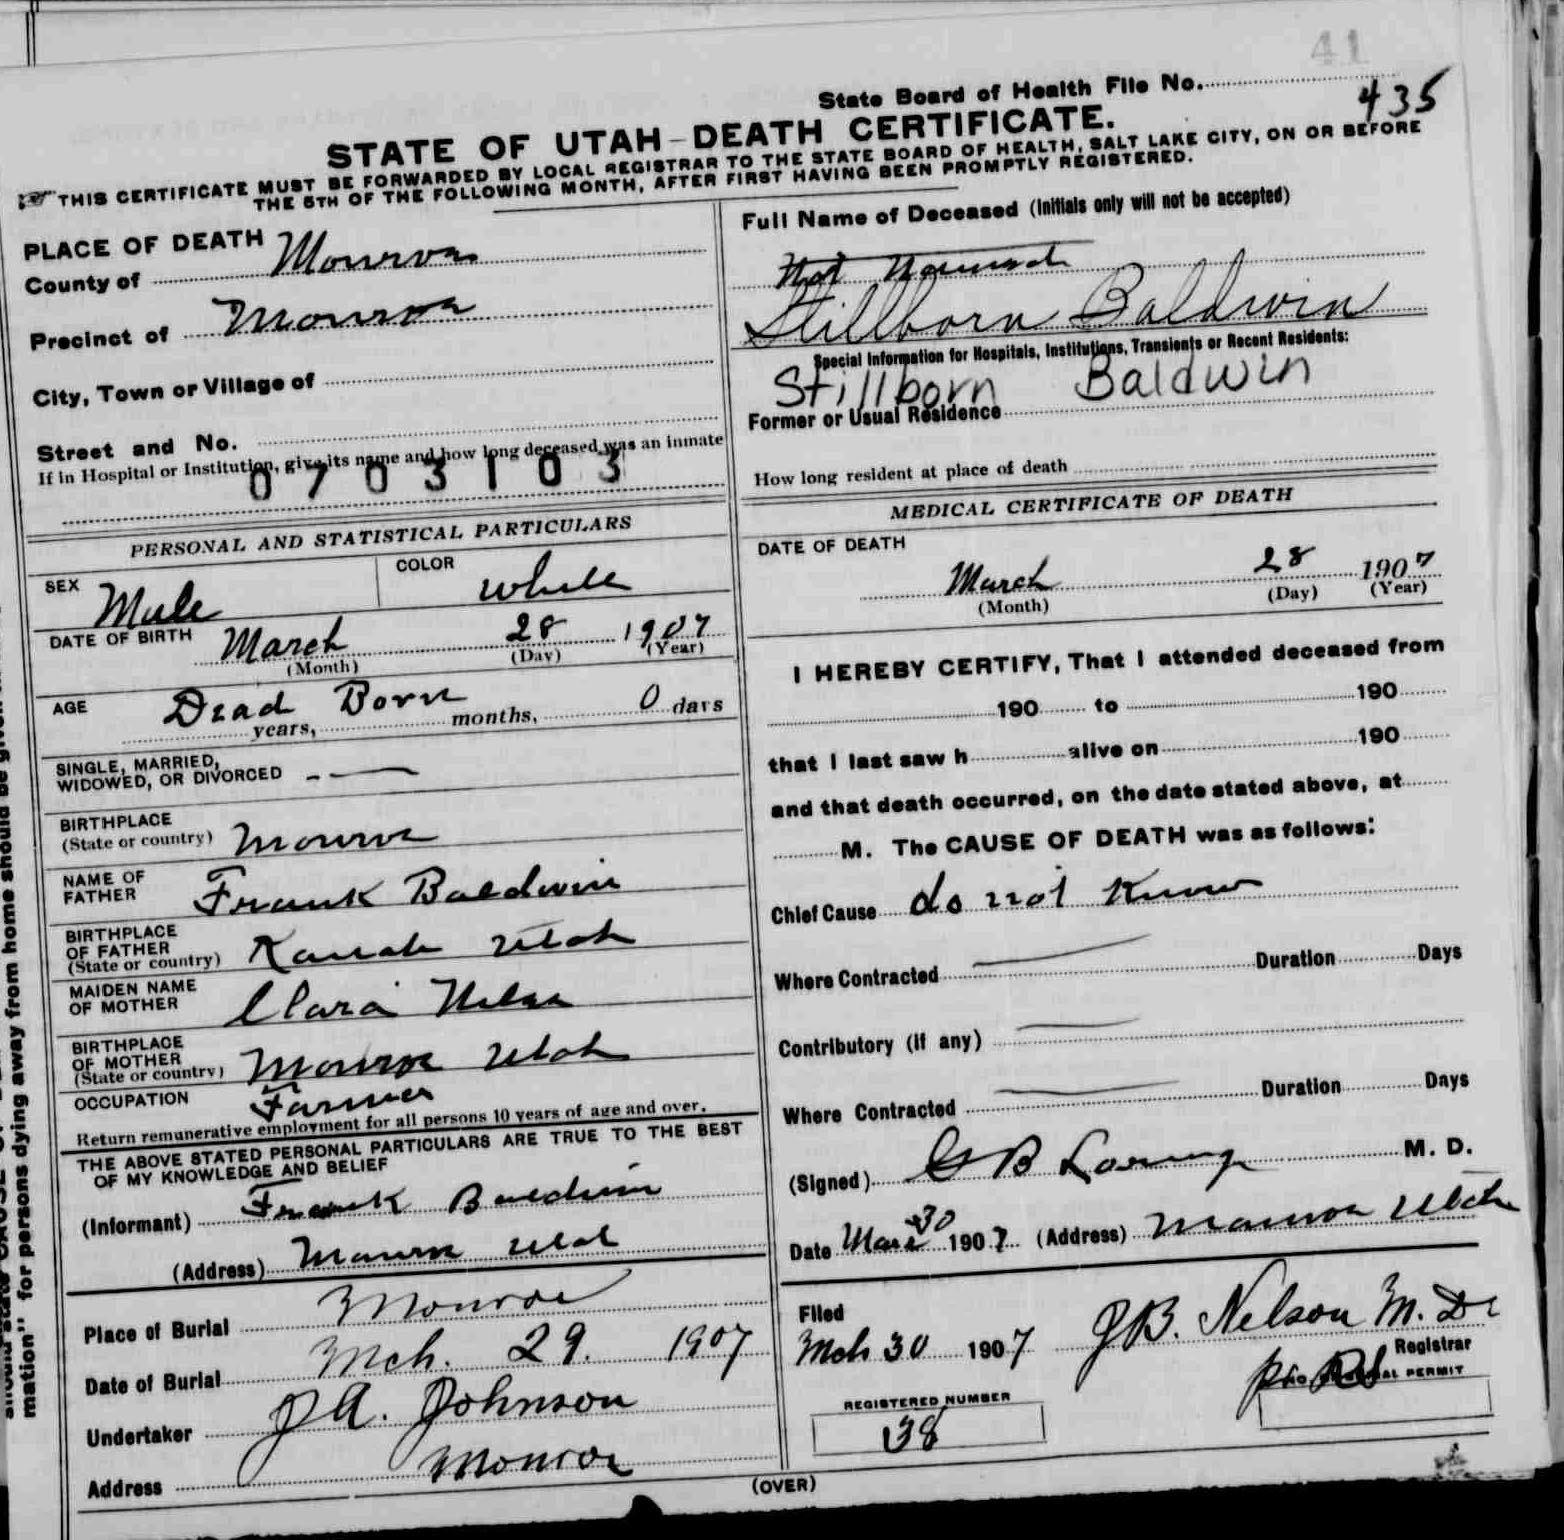 41
State Board of Health File No. 435
STATE OF UTAH-DEATH CERTIFICATE.
THIS CERTIFICATE MUST BE FORWARDED BY LOCAL REGISTRAR TO THE STATE BOARD OF HEALTH, SALT LAKE CITY, ON OR BEFORE
THE 5TH OF THE FOLLOWING MONTH, AFTER FIRST HAVING BEEN PROMPTLY REGISTERED.
PLACE OF DEATH
County of Monroe
Precinct of Monroe
City, Town or Village of
Street and No.
If in Hospital or Institution, give its name and how long deceased was an inmate
0703103
PERSONAL AND STATISTICAL PARTICULARS
SEX Male COLOR White
DATE OF BIRTH March 28 1907
(Month) (Day) (Year)
AGE Dead Born 0 days
years, months,
SINGLE, MARRIED,
WIDOWED, OR DIVORCED
BIRTHPLACE
(State or country) Monroe
NAME OF
FATHER Frank Baldwin
BIRTHPLACE
OF FATHER
(State or country) Kanab Utah
MAIDEN NAME
OF MOTHER Clara
BIRTHPLACE
OF MOTHER
(State or country) Monroe Utah
OCCUPATION Farmer
Return remunerative employment for all persons 10 years of age and over.
THE ABOVE STATED PERSONAL PARTICULARS ARE TRUE TO THE BEST
OF MY KNOWLEDGE AND BELIEF
(Informant) Frank Baldwin
(Address) Monroe Utah
Place of Burial Monroe
Date of Burial Mch. 29. 1907
Undertaker J A. Johnson
Address Monroe
Full Name of Deceased (Initials only will not be accepted)
Not Named
Stillborn Baldwin
Special Information for Hospitals, Institutions, Transients or Recent Residents:
Stillborn Baldwin
Former or Usual Residence
How long resident at place of death
MEDICAL CERTIFICATE OF DEATH
DATE OF DEATH
March 28 1907
(Month) (Day) (Year)
I HEREBY CERTIFY, That I attended deceased from
190 to 190
that I last saw h alive on 190
and that death occurred, on the date stated above, at
M. The CAUSE OF DEATH was as follows:
Chief Cause do not Know
Where Contracted Duration Days
Contributory (if any)
Where Contracted Duration Days
(Signed) G B Loring M. D.
Date Mar 30 1907 (Address) Monroe Utah
Filed
Mch 30 1907 J.B. Nelson M. D.
Registrar
REGISTERED NUMBER
38
PERMIT
(OVER)
mation" for persons dying away from home should be